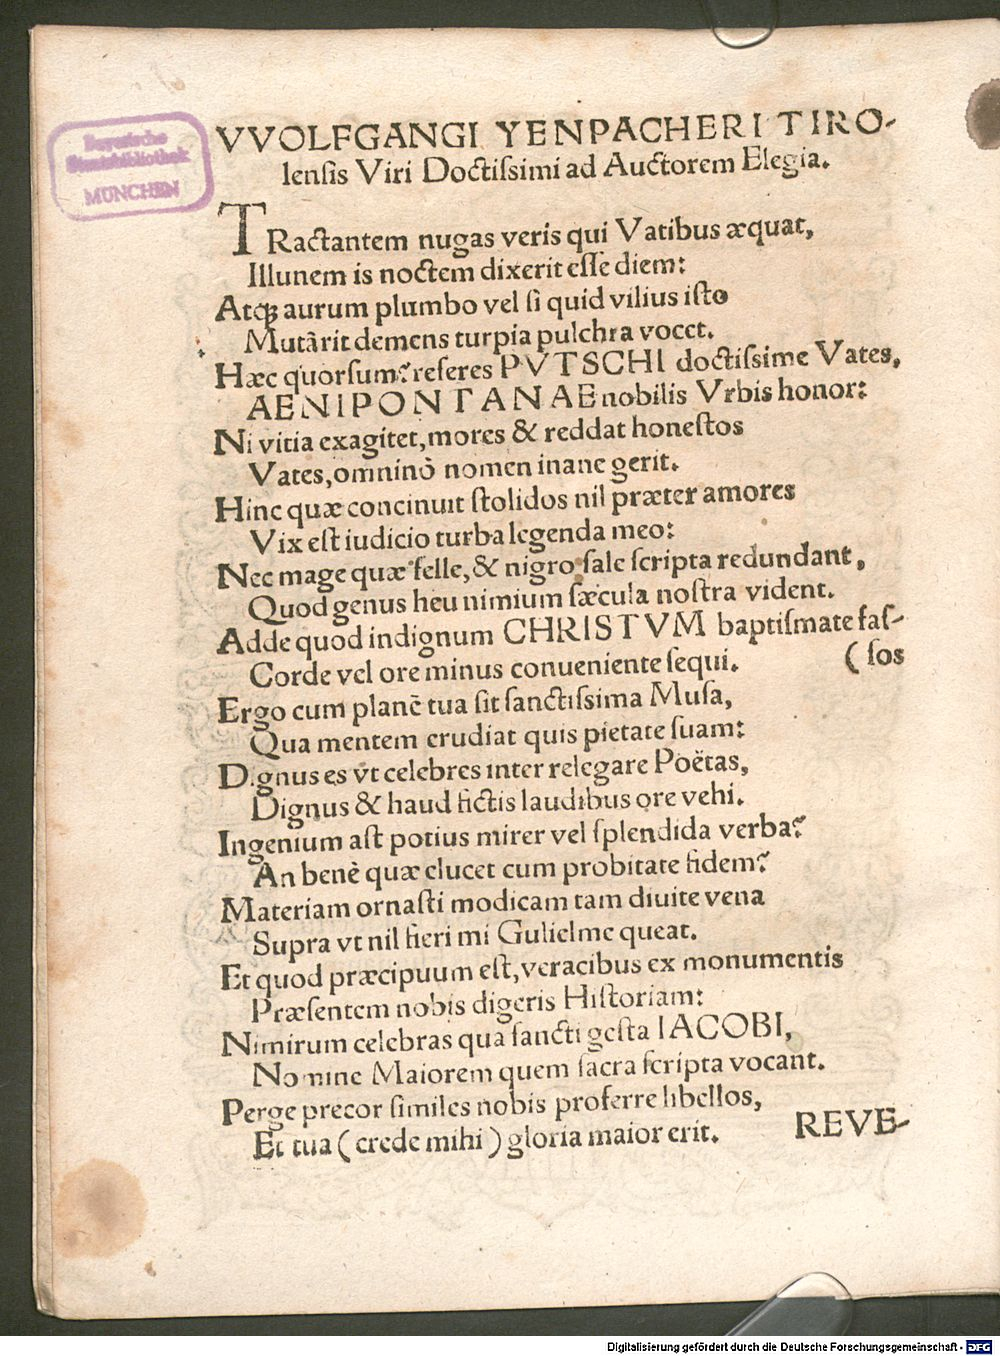 Bayerische
Staatsbibliothek
MÜNCHEN
VVOLFGANGI YENPACHERI TIRO-
lensis Viri Doctissimi ad Auctorem Elegia.
TRactantem nugas veris qui Vatibus æquat,
Illunem is noctem dixerit esse diem:
Atq; aurum plumbo vel si quid vilius isto
Mutârit demens turpia pulchra vocet.
Hæc quorsum? referes PVTSCHI doctissime Vates,
AENIPONTANAE nobilis Vrbis honor:
Ni vitia exagitet, mores & reddat honestos
Vates, omninò nomen inane gerit.
Hinc quæ concinuit stolidos nil præter amores
Vix est iudicio turba legenda meo:
Nec mage quæ felle, & nigro sale scripta redundant,
Quod genus heu nimium sæcula nostra vident.
Adde quod indignum CHRISTVM baptismate fas-
(sos
Corde vel ore minus conueniente sequi.
Ergo cum planè tua sit sanctissima Musa,
Qua mentem erudiat quis pietate suam:
Dignus es vt celebres inter relegare Poëtas,
Dignus & haud fictis laudibus ore vehi.
Ingenium ast potius mirer vel splendida verba?
An benè quæ elucet cum probitate fidem?
Materiam ornasti modicam tam diuite vena
Supra vt nil fieri mi Gulielme queat.
Et quod præcipuum est, veracibus ex monumentis
Præsentem nobis digeris Historiam:
Nimirum celebras qua sancti gesta IACOBI,
Nomine Maiorem quem sacra scripta vocant.
Perge precor similes nobis proferre libellos,
Et tua (crede mihi) gloria maior erit.
REVE-
Digitalisierung gefördert durch die Deutsche Forschungsgemeinschaft - DFG